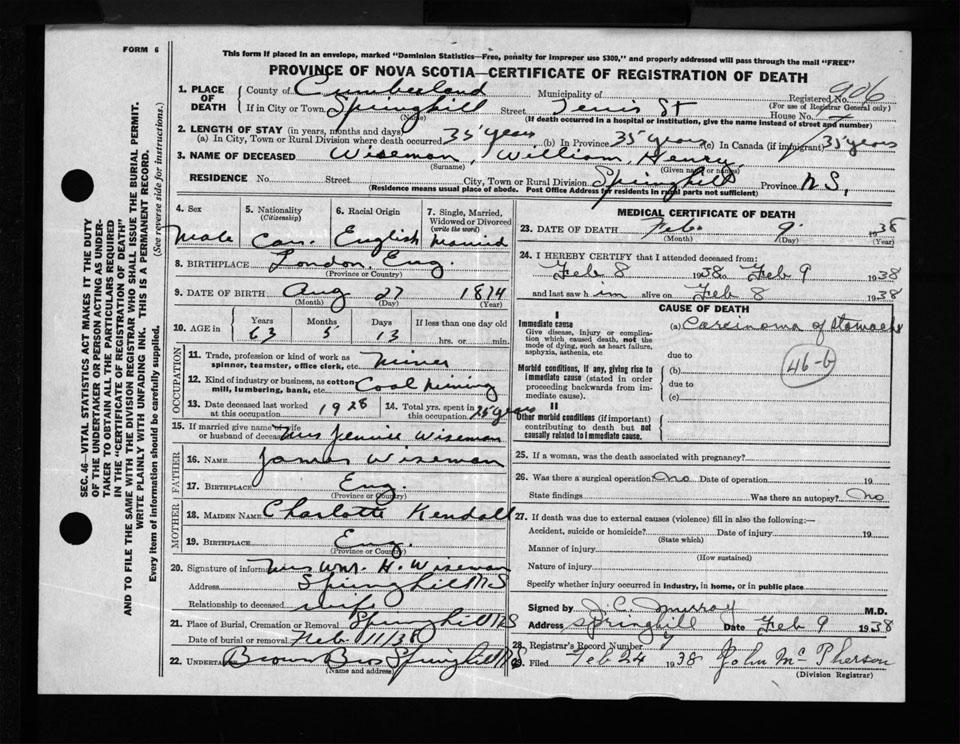 FORM 6
This form if placed in an envelope, marked "Dominion Statistics—Free, penalty for improper use $300," and properly addressed will pass through the mail "FREE"
PROVINCE OF NOVA SCOTIA—CERTIFICATE OF REGISTRATION OF DEATH
1. PLACE OF DEATH County of Cumberland Municipality of Registered No. 906
If in City or Town Springhill (Name) Street Tenis St House No. (For use of Registrar General only)
(If death occurred in a hospital or institution, give the name instead of street and number)
2. LENGTH OF STAY (in years, months and days)
(a) In City, Town or Rural Division where death occurred 35 years (b) In Province 35 years (c) In Canada (if immigrant) 35 years
3. NAME OF DECEASED Wiseman, William Henry
(Surname) (Given name or names)
RESIDENCE No. Street City, Town or Rural Division Springhill Province N.S.
(Residence means usual place of abode. Post Office Address for residents in rural parts not sufficient)
4. Sex Male
5. Nationality (Citizenship) Can.
6. Racial Origin English
7. Single, Married, Widowed or Divorced (write the word) Married
8. BIRTHPLACE London, Eng.
(Province or Country)
9. DATE OF BIRTH Aug 27 1874
(Month) (Day) (Year)
10. AGE in Years 63 Months 5 Days 13 If less than one day old hrs. or min.
OCCUPATION
11. Trade, profession or kind of work as spinner, teamster, office clerk, etc. Miner
12. Kind of industry or business, as cotton mill, lumbering, bank, etc. Coal Mining
13. Date deceased last worked at this occupation 1928
14. Total yrs. spent in this occupation 25 years
15. If married give name of wife or husband of deceased Mrs Jennie Wiseman
FATHER
16. NAME James Wiseman
17. BIRTHPLACE Eng.
(Province or Country)
MOTHER
18. MAIDEN NAME Charlotte Kendall
19. BIRTHPLACE Eng.
(Province or Country)
20. Signature of informant Mrs Wm. H. Wiseman
Address Springhill NS
Relationship to deceased wife
21. Place of Burial, Cremation or Removal Springhill NS
Date of burial or removal Feb 11/38
22. UNDERTAKER Brown Bros Springhill NS
(Name and address)
MEDICAL CERTIFICATE OF DEATH
23. DATE OF DEATH Feb. 9. 1938
(Month) (Day) (Year)
24. I HEREBY CERTIFY that I attended deceased from:
Feb 8 1938 to Feb 9 1938
and last saw him alive on Feb 8 1938
CAUSE OF DEATH
I
Immediate cause
Give disease, injury or complication which caused death, not the mode of dying, such as heart failure, asphyxia, asthenia, etc
(a) Carcinoma of Stomach
46-b
due to
Morbid conditions, if any, giving rise to immediate cause (stated in order proceeding backwards from immediate cause).
(b)
due to
(c)
II
Other morbid conditions (if important) contributing to death but not causally related to immediate cause.
25. If a woman, was the death associated with pregnancy?
26. Was there a surgical operation no Date of operation 19
State findings Was there an autopsy? no
27. If death was due to external causes (violence) fill in also the following:—
Accident, suicide or homicide? Date of injury 19
(State which)
Manner of injury
(How sustained)
Nature of injury
Specify whether injury occurred in industry, in home, or in public place
Signed by J. C. Murray M.D.
Address Springhill Date Feb 9 1938
28. Registrar's Record Number
29. Filed Feb 24 1938 John McPherson
(Division Registrar)
SEC. 46—VITAL STATISTICS ACT MAKES IT THE DUTY
OF THE UNDERTAKER OR PERSON ACTING AS UNDER-
TAKER TO OBTAIN ALL THE PARTICULARS REQUIRED
IN THE "CERTIFICATE OF REGISTRATION OF DEATH"
AND TO FILE THE SAME WITH THE DIVISION REGISTRAR WHO SHALL ISSUE THE BURIAL PERMIT.
WRITE PLAINLY WITH UNFADING INK. THIS IS A PERMANENT RECORD.
Every item of information should be carefully supplied. (See reverse side for instructions.)